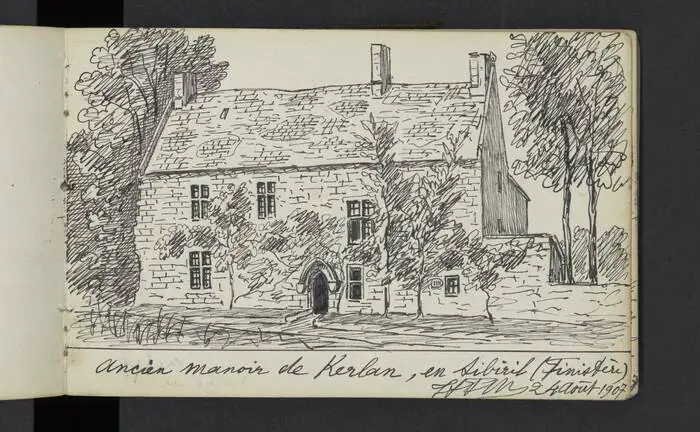 Ancien manoir de Kerlan, en Sibiril (Finistère)
24 Août 1907